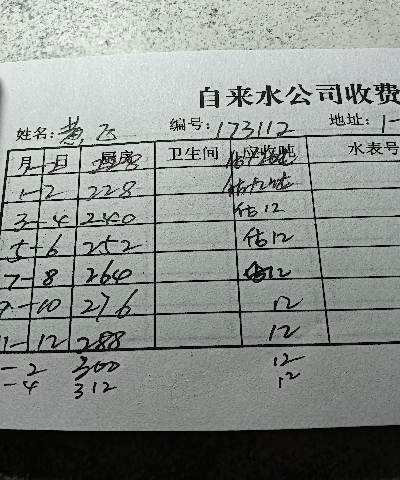 自来水公司收费
姓名: 黄飞 编号: 173112 地址: 1-
月 日 厨房 卫生间 应收吨 水表号
1-2 228
3-4 240 估12
5-6 252 估12
7-8 264 估12
9-10 276 12
11-12 288 12
-2 300 12
-4 312 12